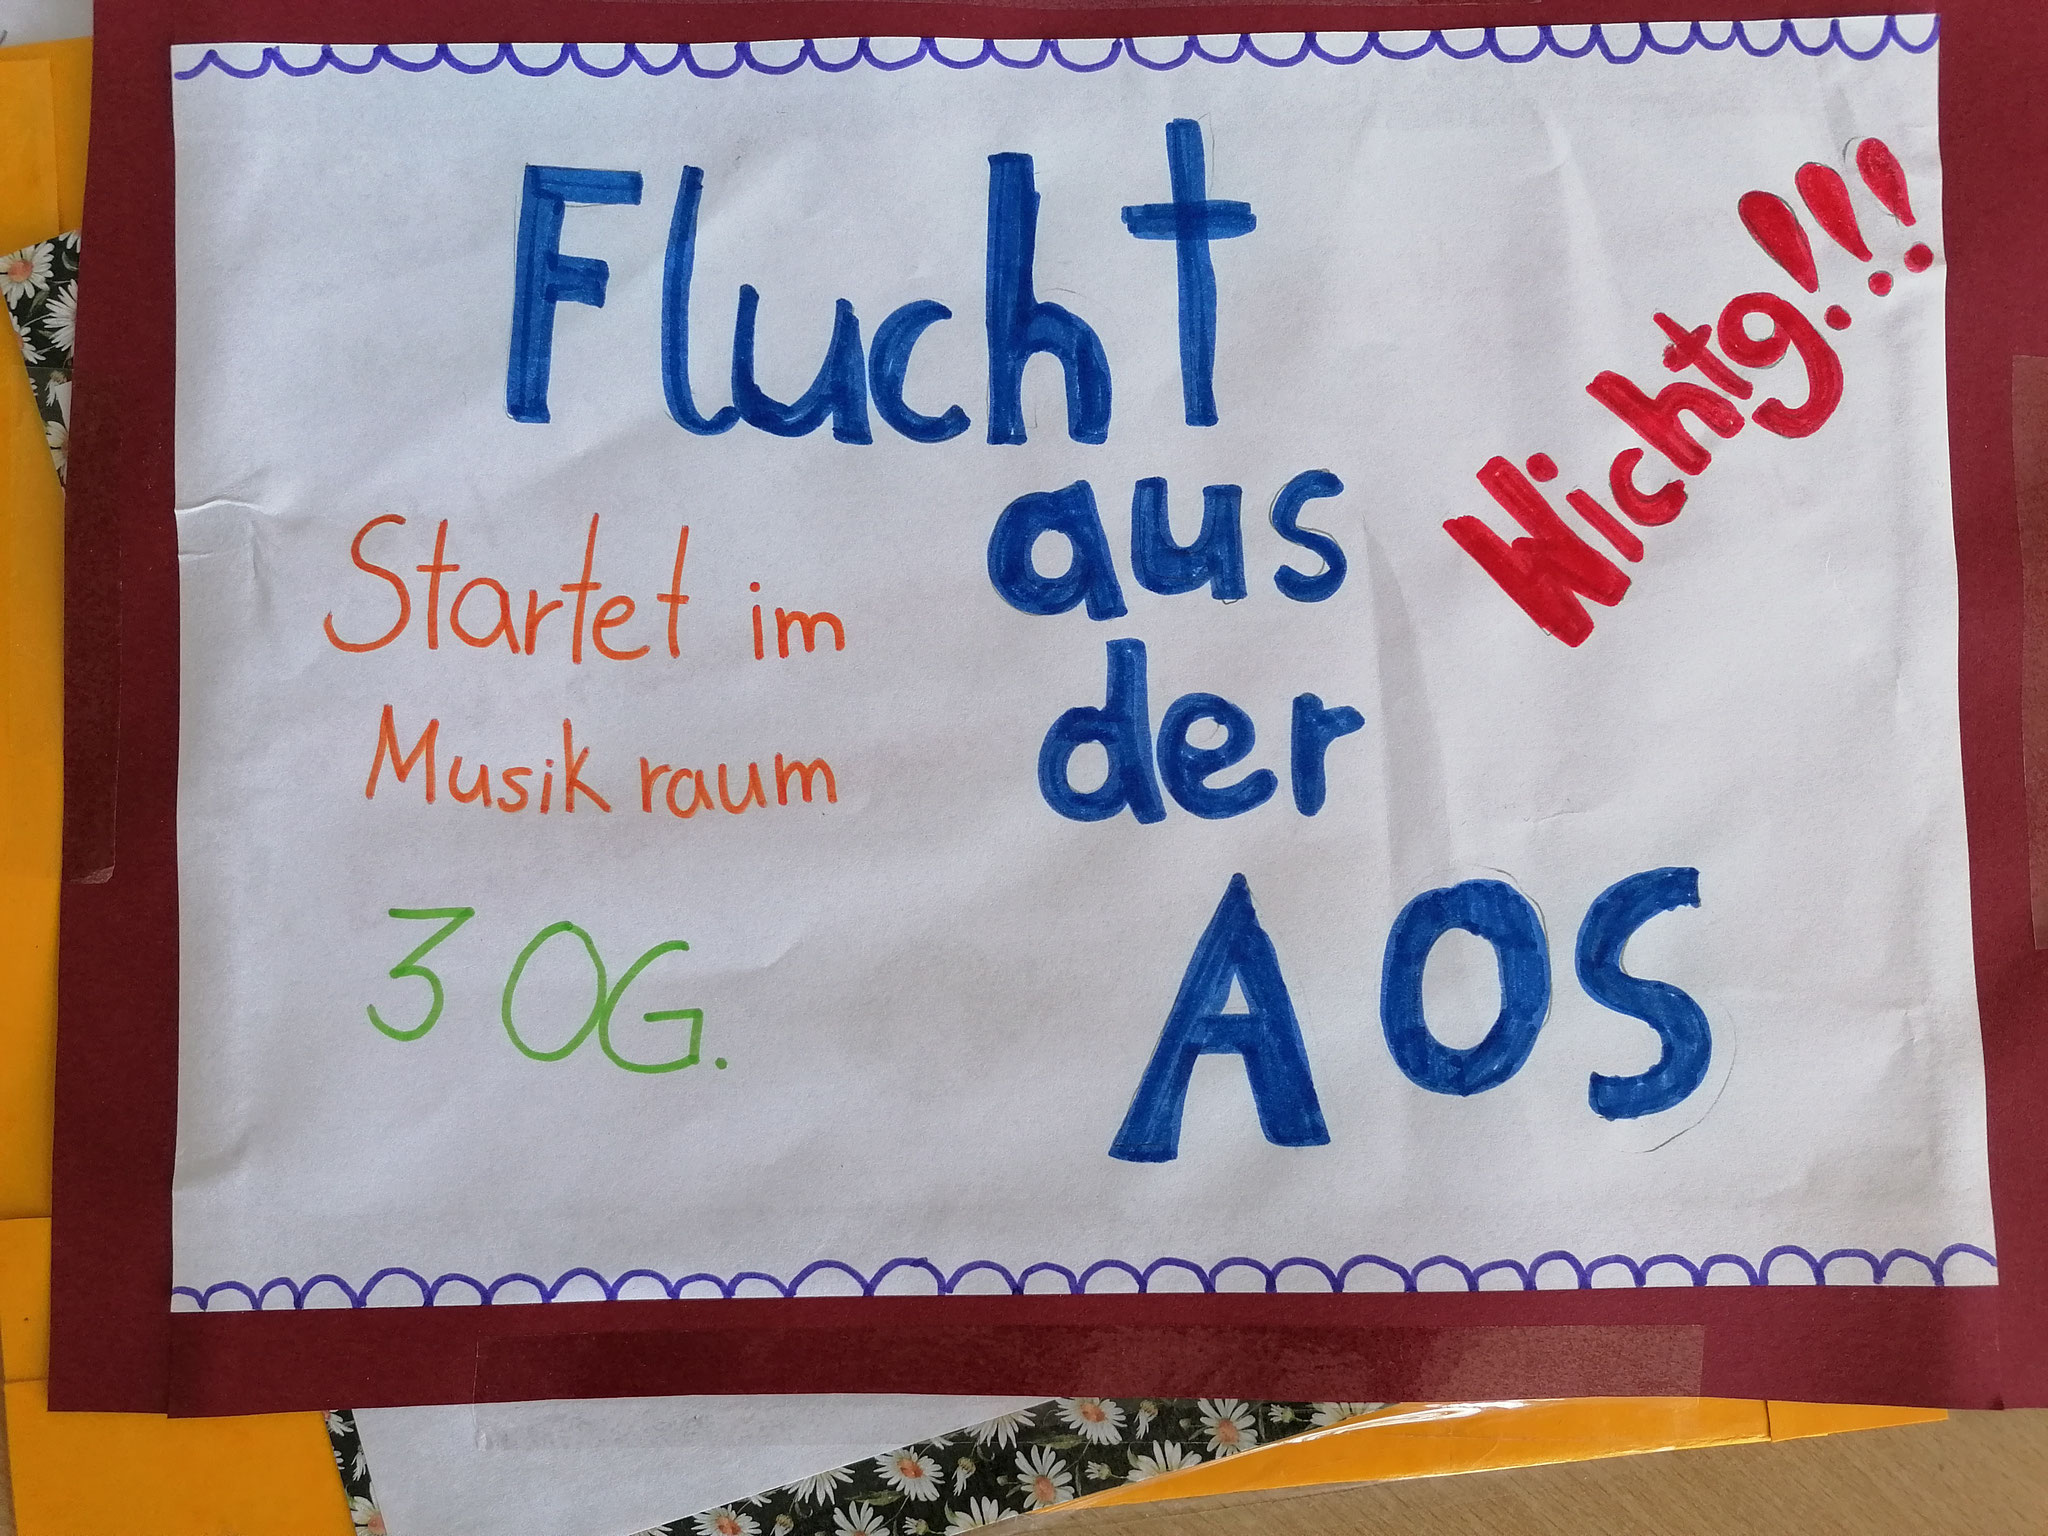 Flucht
aus
der
AOS
Wichtg!!!
Startet im
Musik raum
3 OG.